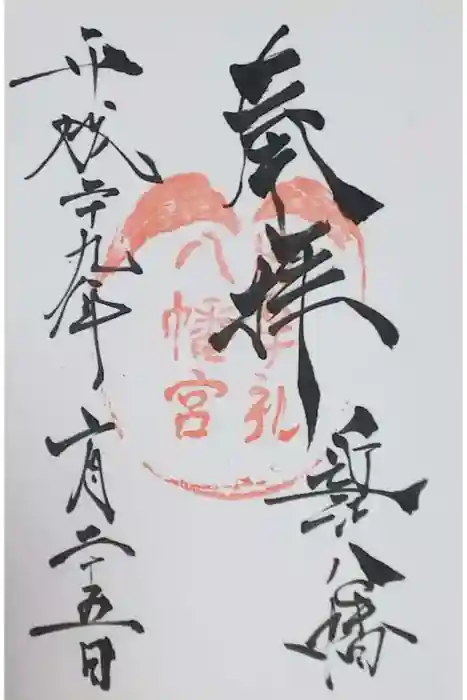 奉拝
八幡
礼
八幡宮
平成二十九年
六月二十五日